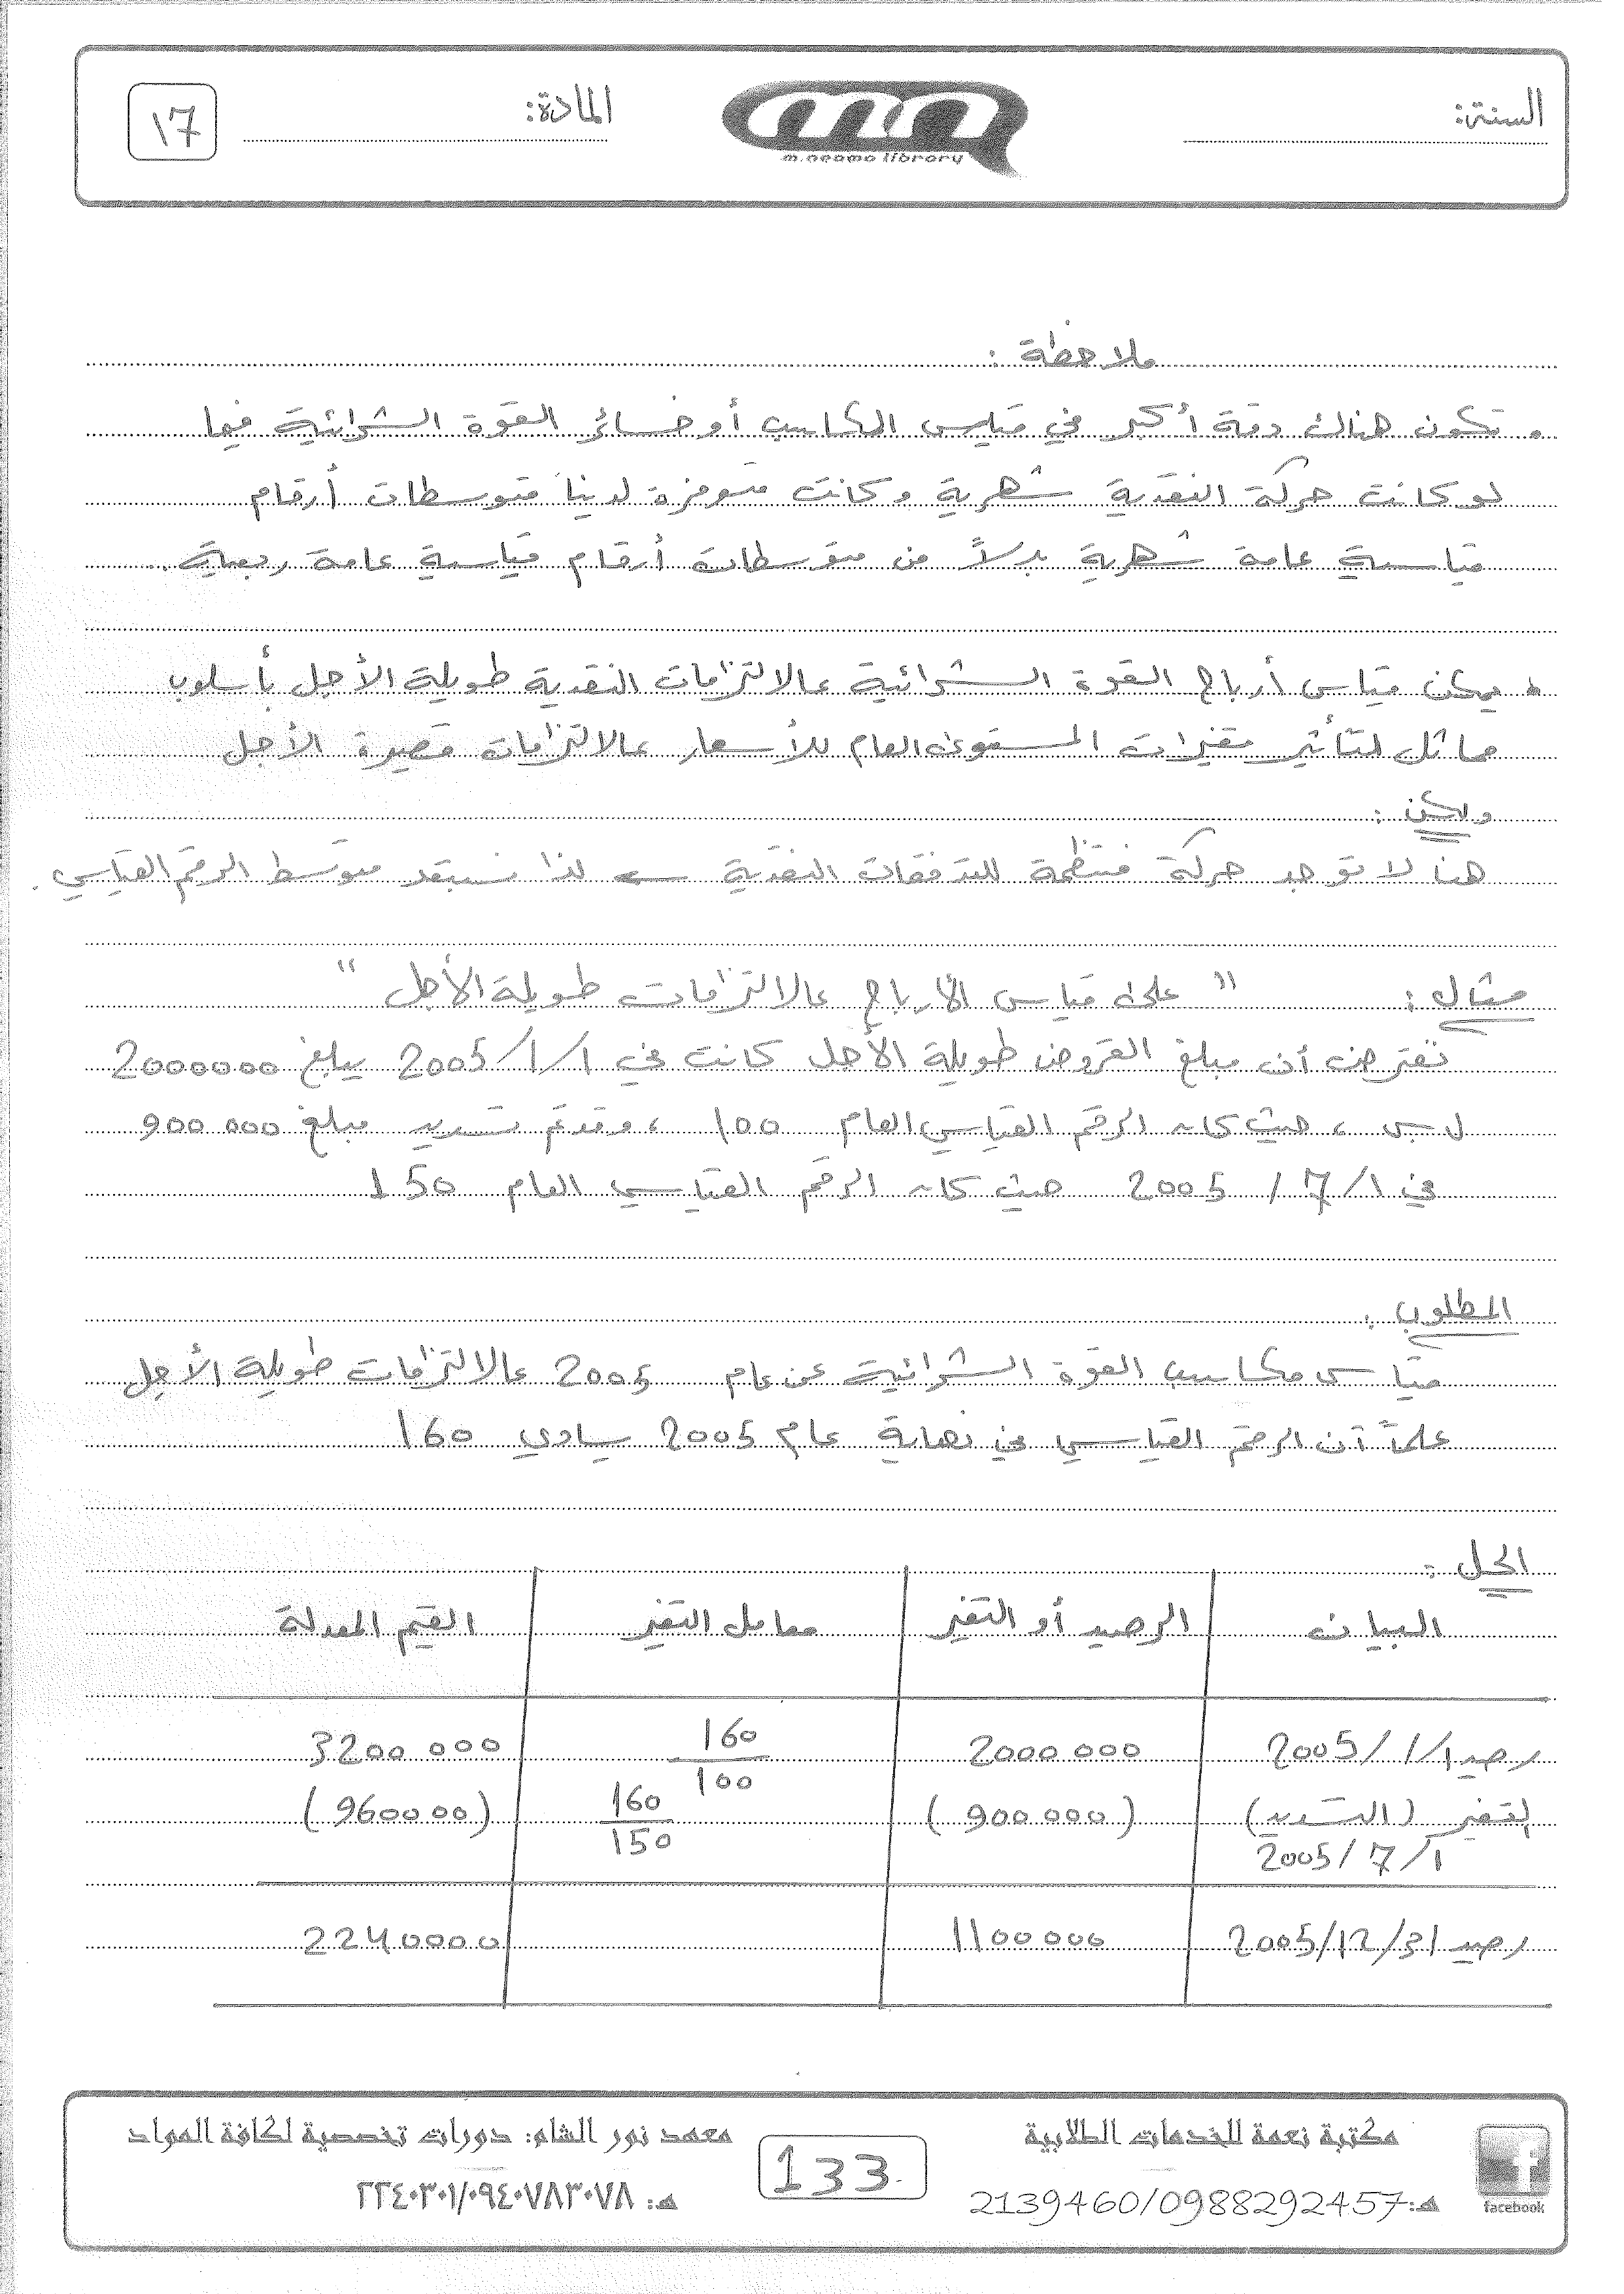 السنة:
m.neama library
المادة:
17
ملاحظة :
• تكون هناك دقة أكبر في قياس المكاسب أو خسائر القوة الشرائية فيما
لو كانت حركة النقدية شهرية وكانت متوفرة لدينا متوسطات أرقام
قياسية عامة شهرية بدلاً من متوسطات أرقام قياسية عامة ربعية .
• يمكن قياس أرباح القوة الشرائية عالالتزامات النقدية طويلة الأجل بأسلوب
مماثل لتأثير متغيرات المستوى العام للأسعار عالالتزامات قصيرة الأجل
ولكن :
هنا لا توجد حركة منتظمة للتدفقات النقدية ← لذا نستبعد متوسط الرقم القياسي .
مثال : " على قياس الأرباح عالالتزامات طويلة الأجل "
نفترض أن مبلغ القروض طويلة الأجل كانت في 1/1/2005 يبلغ 2000000
ل.س ، حيث كان الرقم القياسي العام 100 ، وقد تم تسديد مبلغ 900 000
في 1/7/2005 حيث كان الرقم القياسي العام 150
المطلوب :
قياس مكاسب القوة الشرائية عن عام 2005 عالالتزامات طويلة الأجل
علماً أن الرقم القياسي في نهاية عام 2005 يساوي 160
الحل :
البيان الرصيد أو التغير معامل التغير القيم المعدلة
رصيد 1/1/2005 2000 000 160/100 3200 000
التغير (التسديد) (900 000) 160/150 (9600 00)
1/7/2005
رصيد 31/12/2005 1100 000 2240000
facebook
مكتبة نعمة للخدمات الطلابية
هـ: 2139460/0988292457
133
معهد نور الشام: دورات تخصصية لكافة المواد
هـ: ٢٢٤٠٣٠١/٠٩٤٠٧٨٣٠٧٨